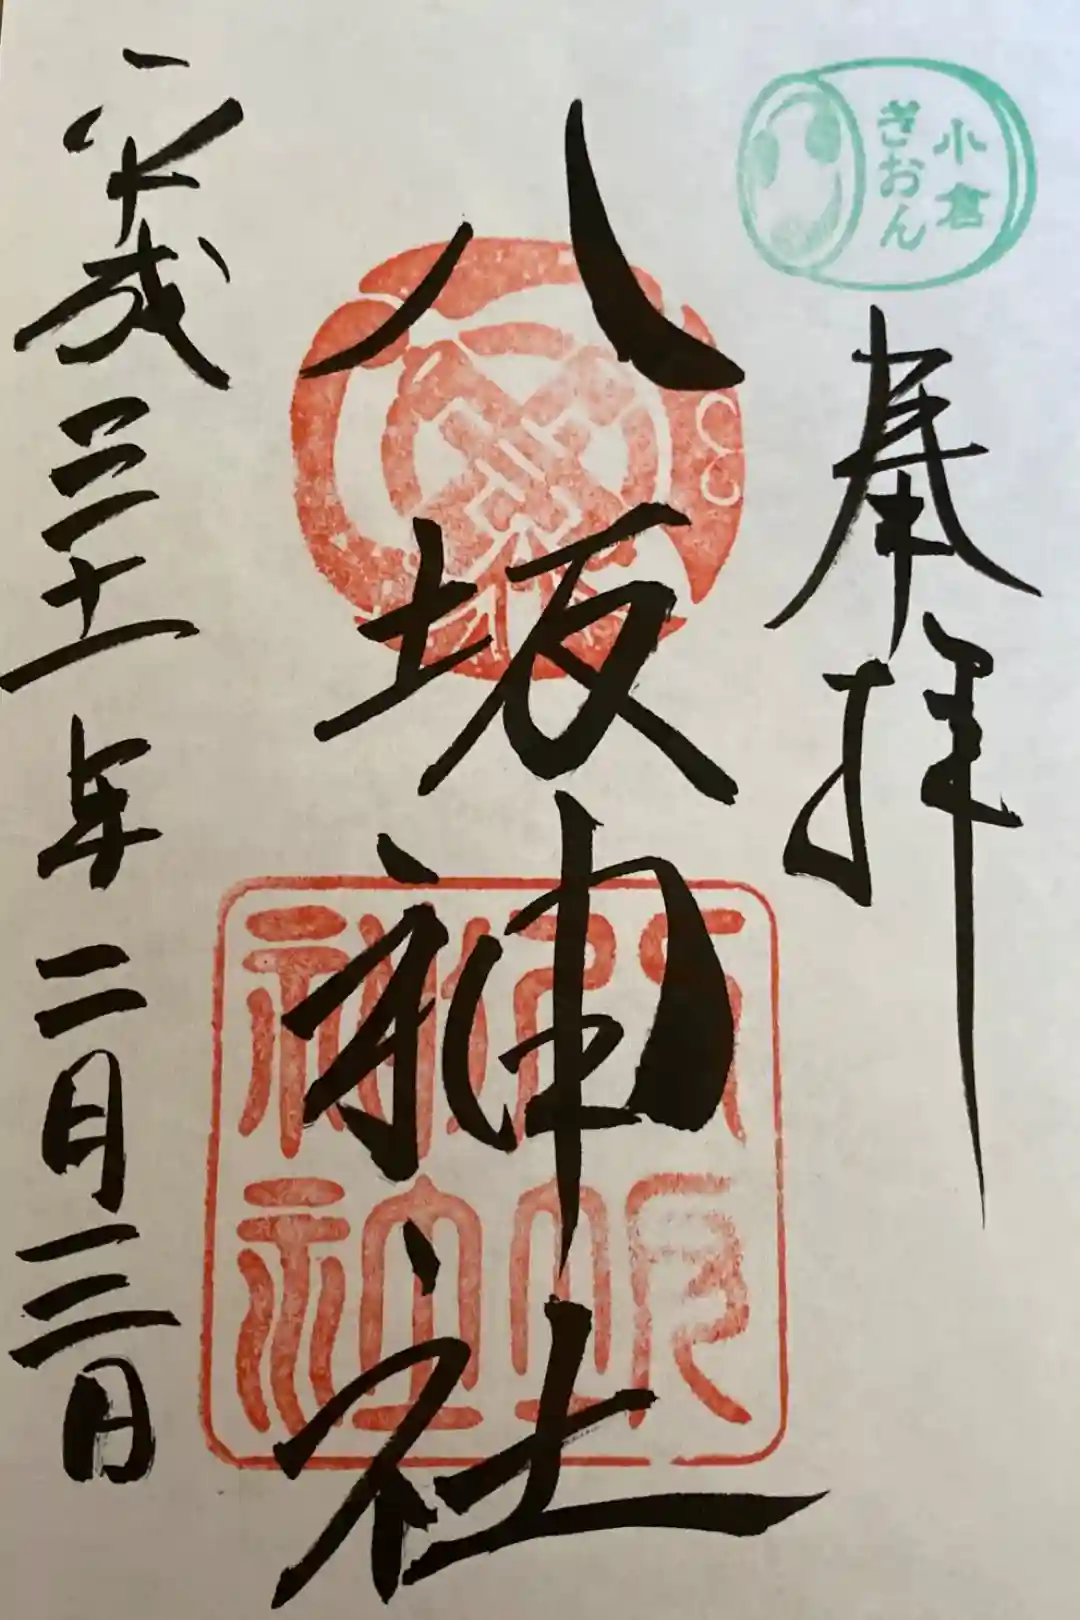 小倉
ぎおん
奉拝
八坂神社
八坂神社
平成三十一年二月三日